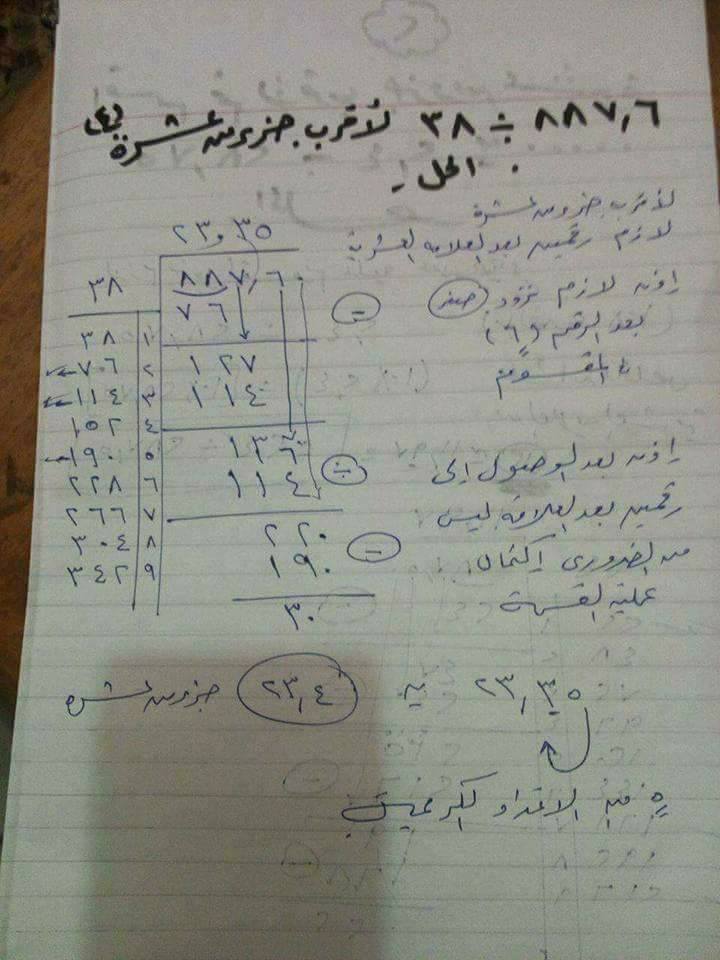 ٨٨٧,٦ ÷ ٣٨ لأقرب جزء من عشرة
الحل
لأقرب جزء من عشرة
لازم رقمين بعد العلامة العشرية
إذن لازم نزود صفر
بعد الرقم (٦)
المقسوم
إذن بعد الوصول إلى
رقمين بعد العلامة ليس
من الضروري إكتمال
عملية القسمة
٢٣,٣٥
٣٨ ٨٨٧,٦٠
٧٦ -
١٢٧
١١٤
١٣٦
١١٤ -
٢٢٠
١٩٠ -
٣٠
٣٨ ١
٧٦ ٢
١١٤ ٣
١٥٢ ٤
١٩٠ ٥
٢٢٨ ٦
٢٦٦ ٧
٣٠٤ ٨
٣٤٢ ٩
٢٣,٣٥ ≃ ٢٣,٤ جزء من عشرة
٥ من الاعداد الكبر